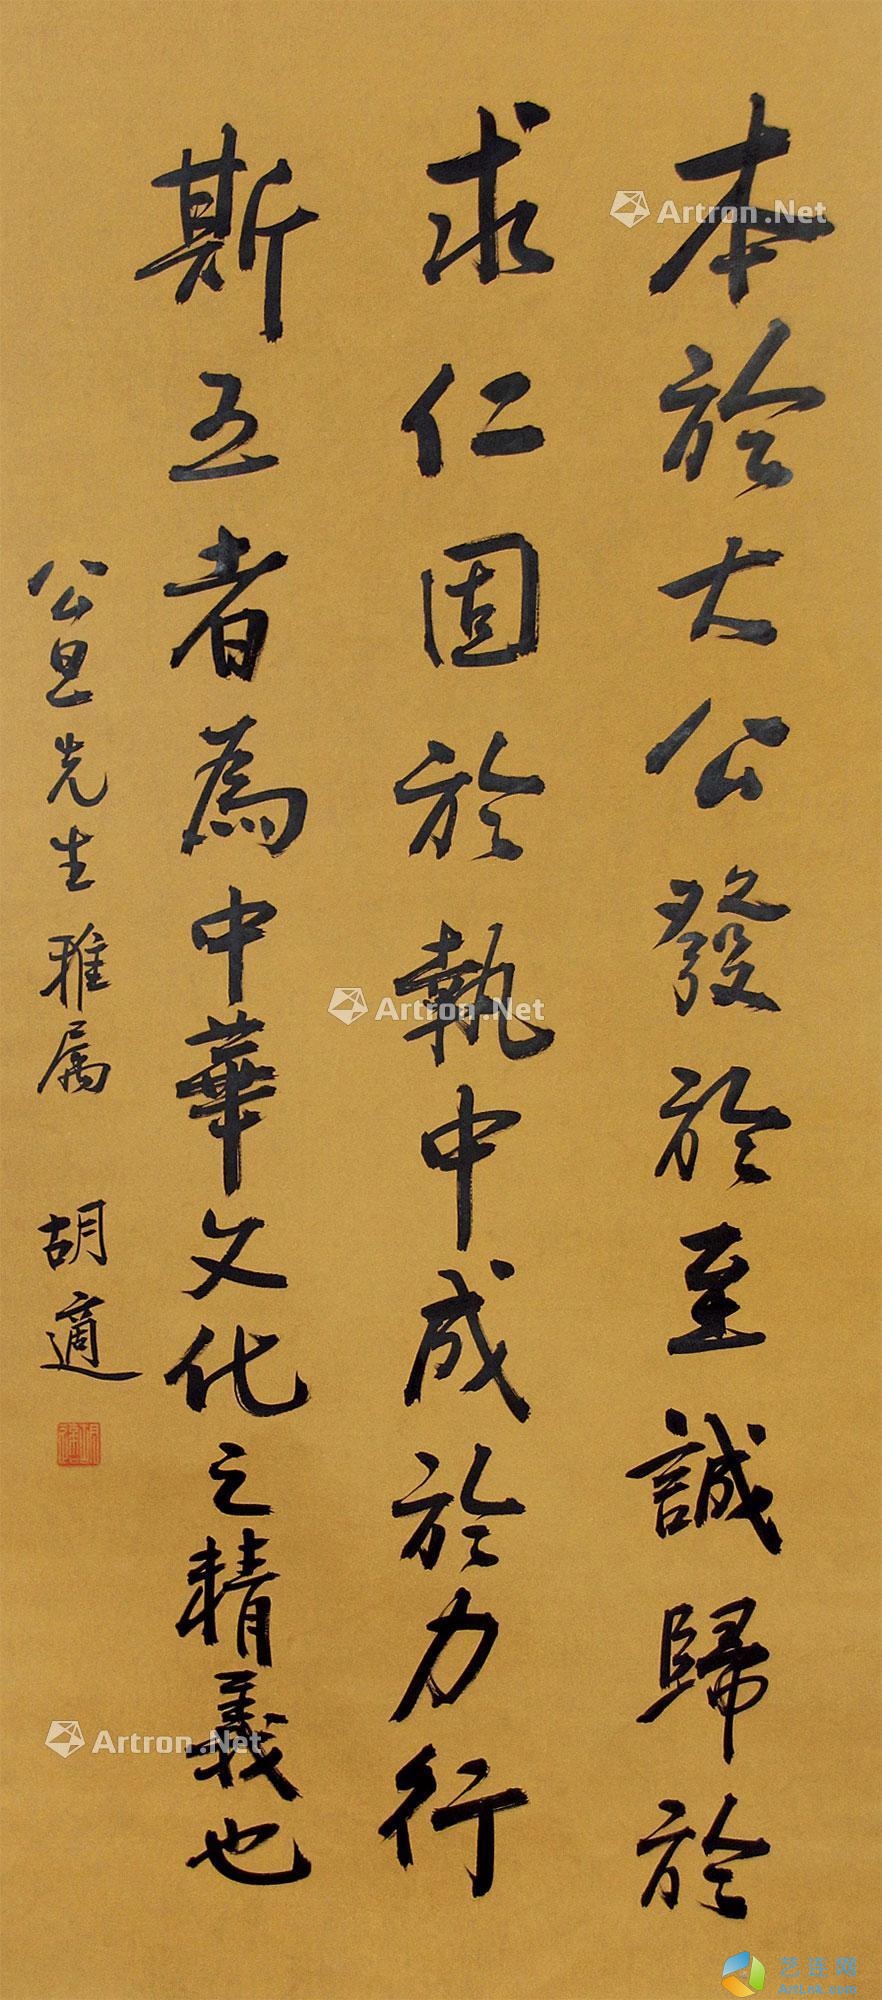 本於大公發於至誠歸於
求仁固於執中成於力行
斯五者為中華文化之精義也
公旦先生雅属 胡適
胡適
Artron.Net
Artron.Net
Artron.Net
艺连网
ArtLink.com